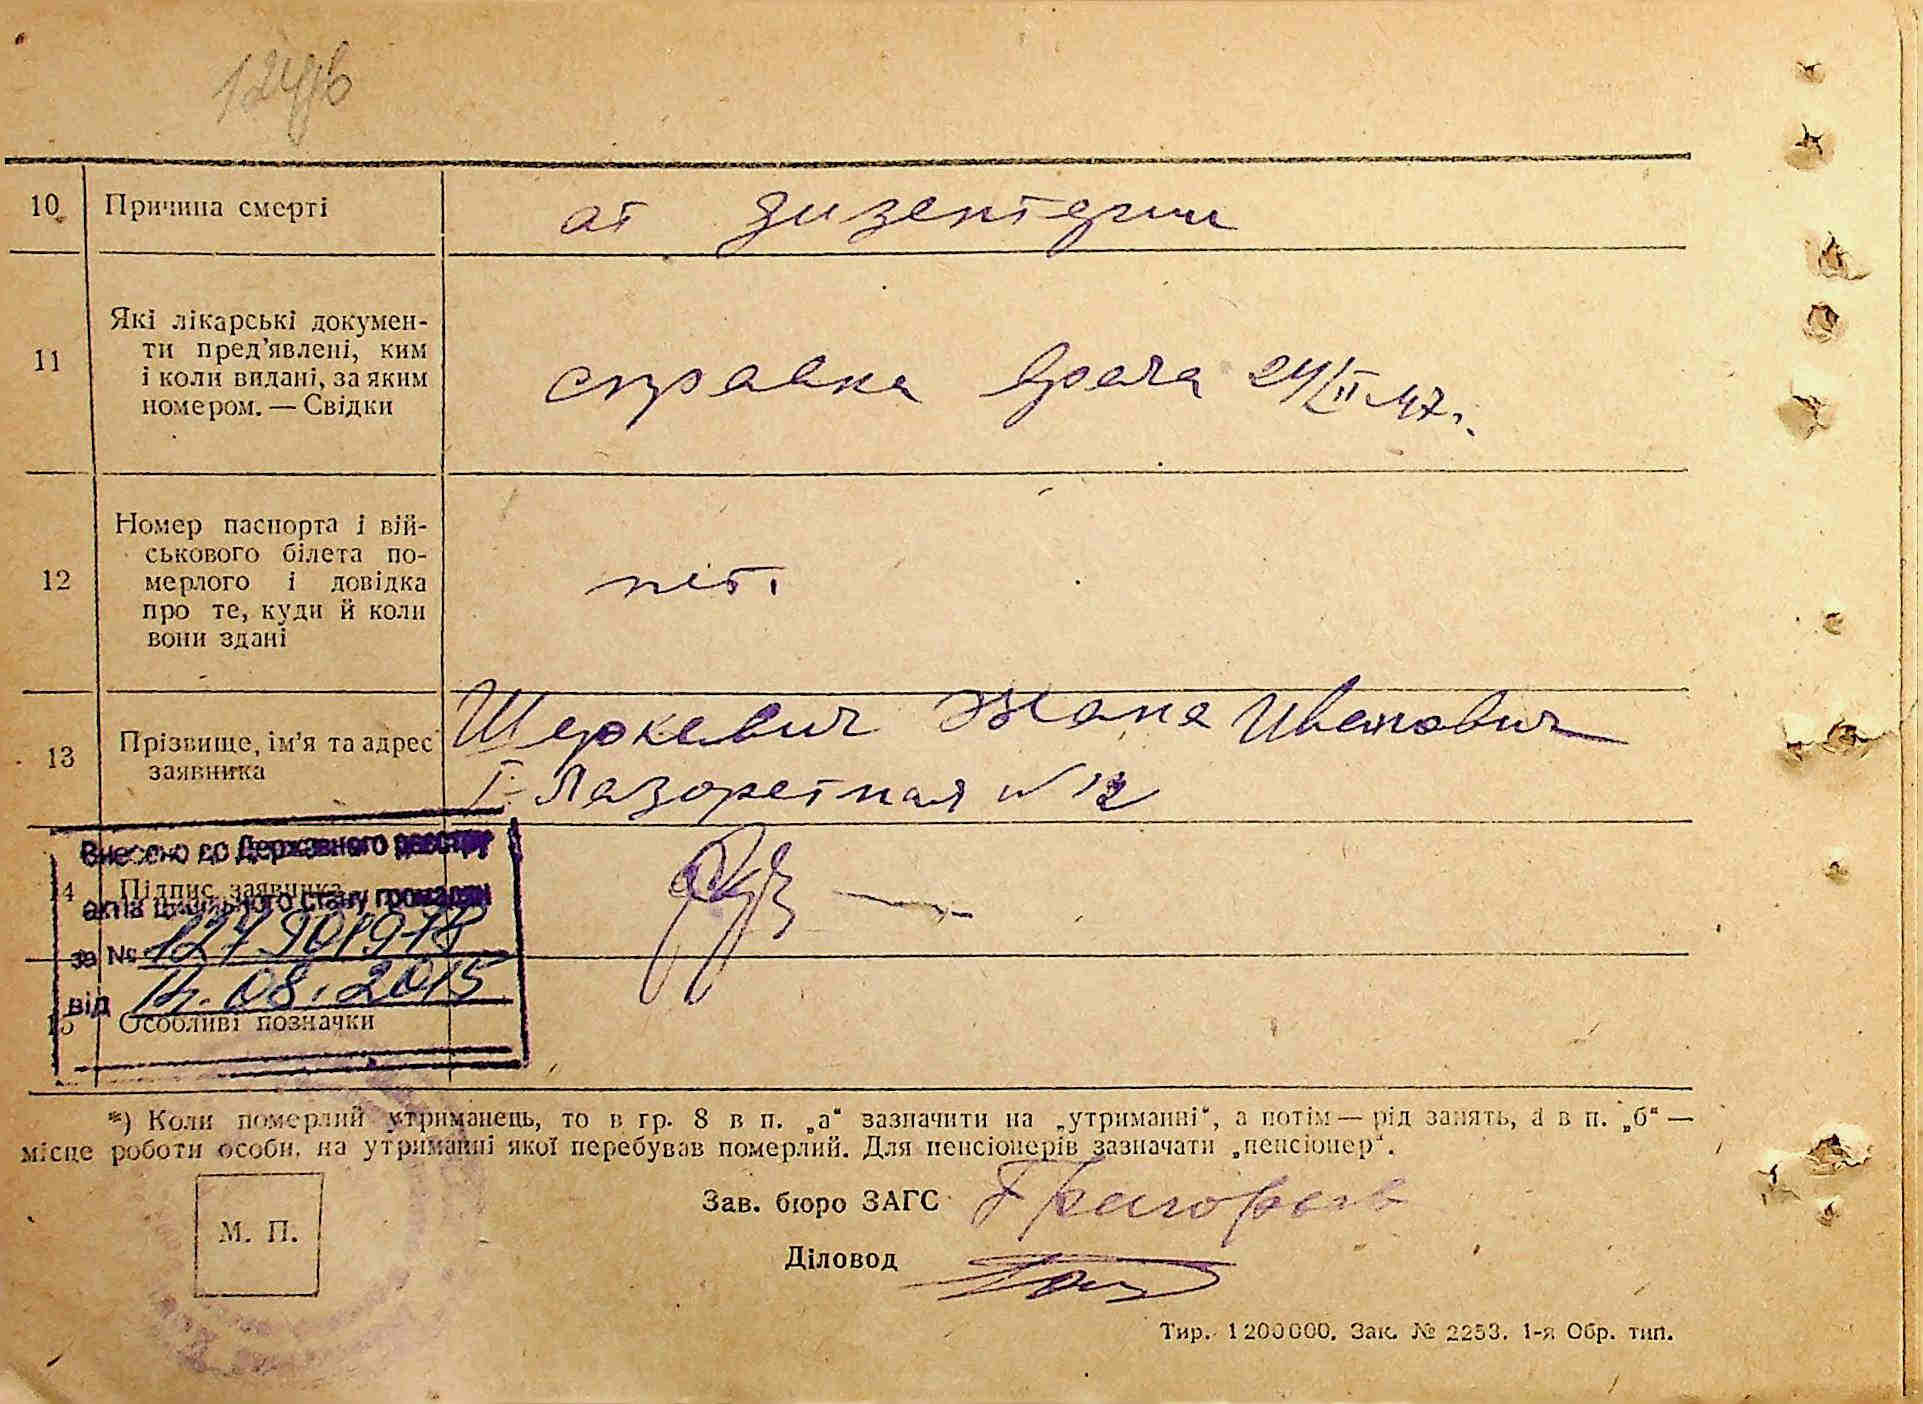 10 Причина смерті ат дизентерии
11 Які лікарські докумен-
ти пред'явлені, ким
і коли видані, за яким
номером. — Свідки
справка врача 24/II-47г.
12 Номер паспорта і вій-
ськового білета по-
мерлого і довідка
про те, куди й коли
вони здані
нет.
13 Прізвище, ім'я та адрес
заявника
Шеркевич Жана Иванович
I- Лазоретная N 12
14 Підпис заявника
15 Особливі позначки
Внесено до Державного реєстру
актів цивільного стану громадян
за №
від 14.08.2015
*) Коли померлий утриманець, то в гр. 8 в п. „а“ зазначити на „утриманні“, а потім — рід занять, а в п. „б“ —
місце роботи особи, на утриманні якої перебував померлий. Для пенсіонерів зазначати „пенсіонер“.
М. П.
Зав. бюро ЗАГС
Діловод
Тир. 1200000. Зак. № 2253. 1-я Обр. тип.